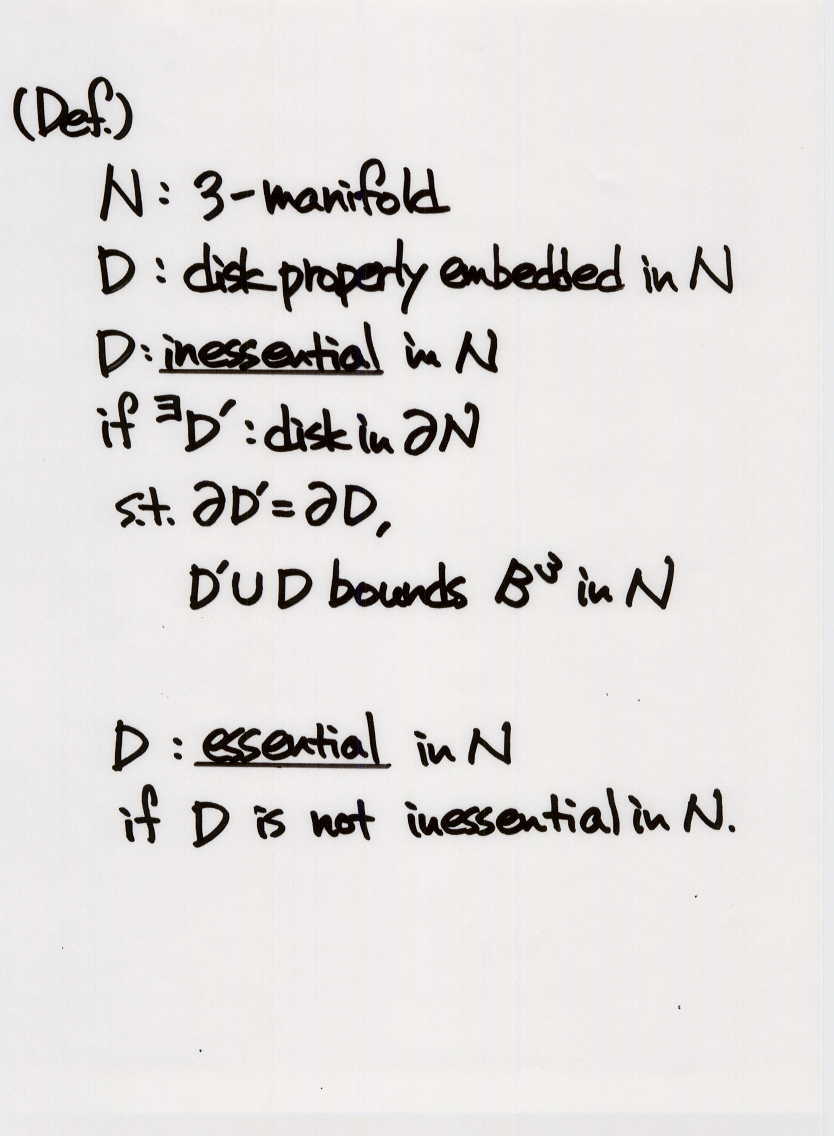 (Def.)
N : 3-manifold
D : disk properly embedded in N
D : inessential in N
if ∃D′ : disk in ∂N
s.t. ∂D′ = ∂D,
D′∪D bounds B³ in N
D : essential in N
if D is not inessential in N.